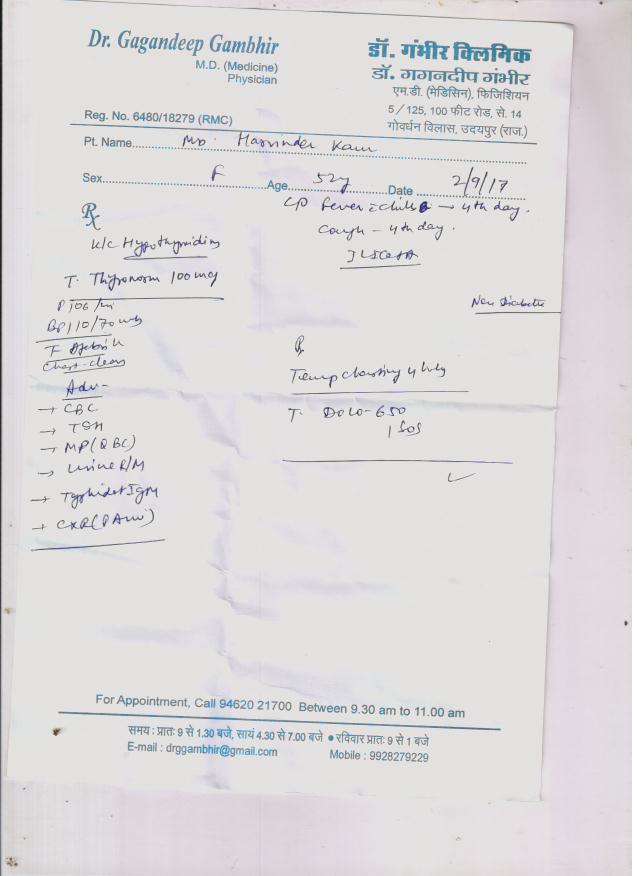 Dr. Gagandeep Gambhir
M.D. (Medicine)
Physician
Reg. No. 6480/18279 (RMC)
डॉ. गंभीर क्लिनिक
डॉ. गगनदीप गंभीर
एम.डी. (मेडिसिन), फिजिशियन
5/125, 100 फीट रोड, से. 14
गोवर्धन विलास, उदयपुर (राज.)
Pt. Name Harvinder Kaur
Sex F Age 52y Date 2/9/17
Rx
K/C Hypothyroidism
T. Thyronorm 100 mcg
P 106/
BP 110/70
T
Chest-clear
Adv-
→ CBC
→ TSH
→ MP (QBC)
→ Urine R/M
→ Typhidot IgM
→ CXR (PA
C/O Fever c chills → 4th day.
Cough - 4th day.
Non Diabetic
Rx
Temp charting 4 hrly
T. DOLO-650
1 SOS
For Appointment, Call 94620 21700 Between 9.30 am to 11.00 am
समय : प्रातः 9 से 1.30 बजे, सायं 4.30 से 7.00 बजे ● रविवार प्रातः 9 से 1 बजे
E-mail : drggambhir@gmail.com Mobile : 9928279229